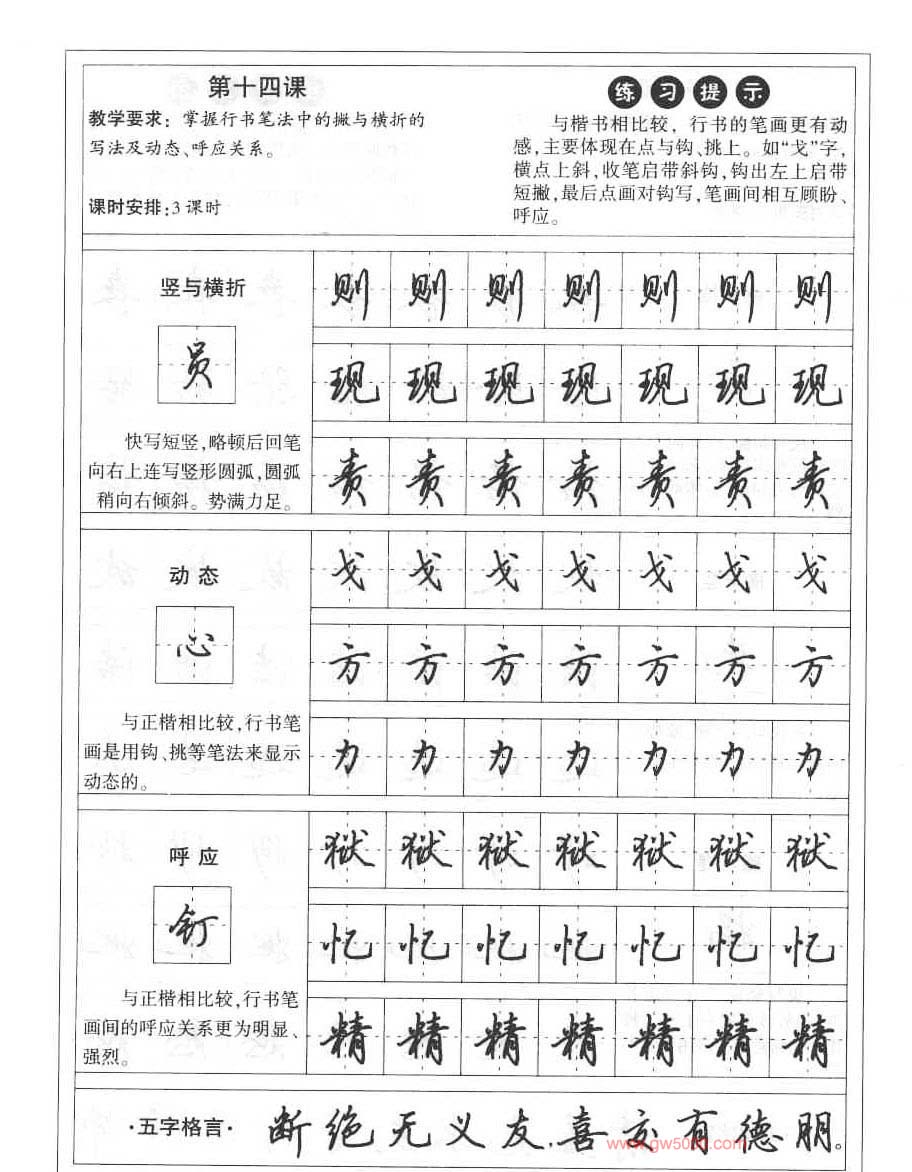 第十四课
教学要求：掌握行书笔法中的撇与横折的
写法及动态、呼应关系。
课时安排：3课时
练习提示
与楷书相比较，行书的笔画更有动
感，主要体现在点与钩、挑上。如“戈”字，
横点上斜，收笔启带斜钩，钩出左上启带
短撇，最后点画对钩写，笔画间相互顾盼、
呼应。
竖与横折
员
快写短竖，略顿后回笔
向右上连写竖形圆弧，圆弧
稍向右倾斜。势满力足。
则则则则则则则
现现现现现现现
责责责责责责责
动态
心
与正楷相比较，行书笔
画是用钩、挑等笔法来显示
动态的。
戈戈戈戈戈戈戈
方方方方方方方
力力力力力力力
呼应
钉
与正楷相比较，行书笔
画间的呼应关系更为明显、
强烈。
狱狱狱狱狱狱狱
忆忆忆忆忆忆忆
精精精精精精精
·五字格言· 断绝无义友，喜交有德朋。